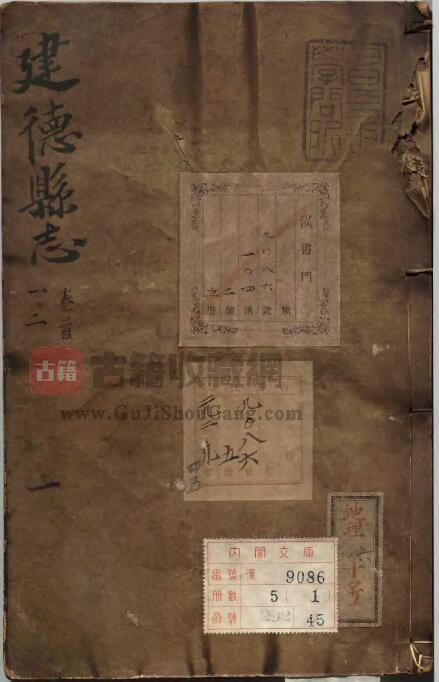 建德縣志
卷首
一二
一
漢書門
類
九〇八六
號
一〇四
函
二
架
五
冊
九〇八六
五
四五
地理
十号
內閣文庫
番號 漢 9086
冊數 5(1)
函號 292 45
古籍
古籍收藏網
www.GuJiShouCang.com